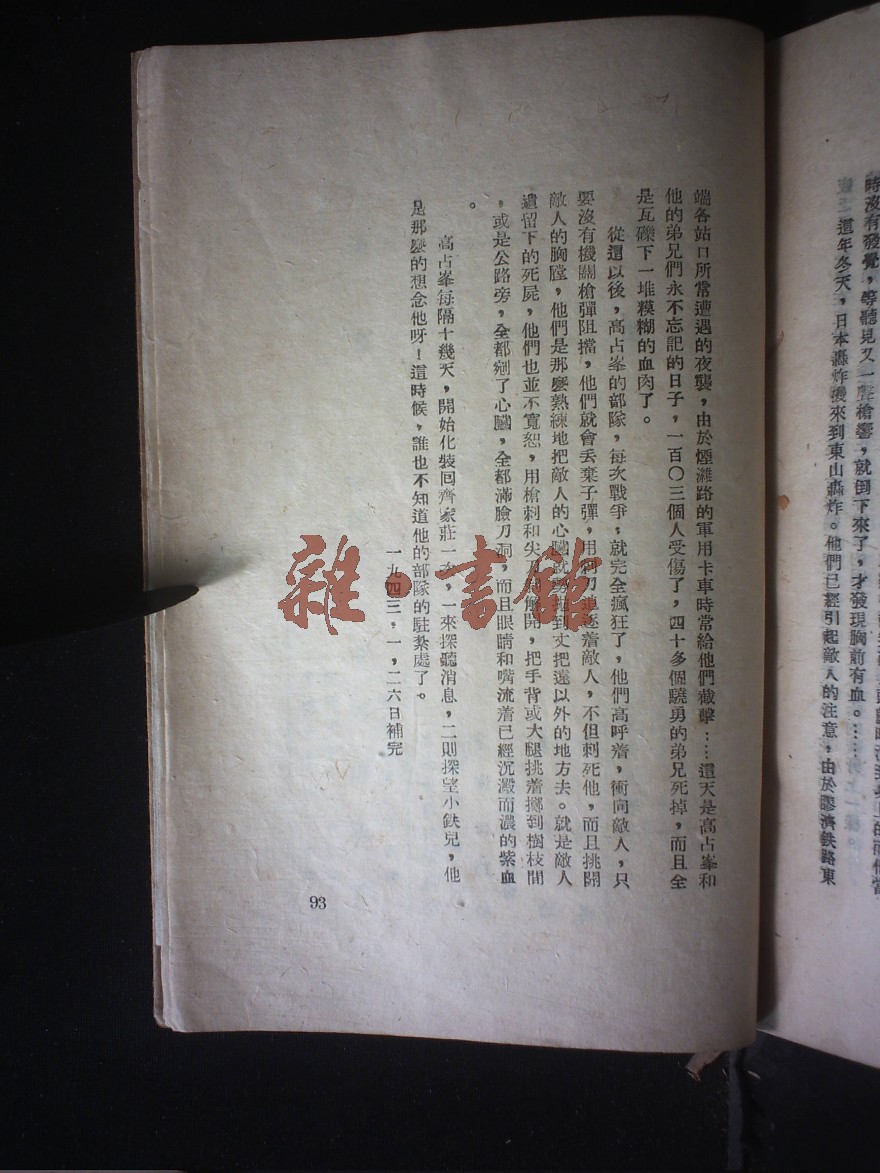 時沒有發覺，等聽見又一聲槍響，就倒下來了，才發現胸前有血。……
這年冬天，日本轟炸機來到東山轟炸。他們已經引起敵人的注意，由於膠濟鉄路東
端各站口所常遭遇的夜襲，由於煙濰路的軍用卡車時常給他們截擊……這天是高占峯和
他的弟兄們永不忘記的日子，一百〇三個人受傷了，四十多個驍勇的弟兄死掉，而且全
是瓦礫下一堆糢糊的血肉了。
從這以後，高占峯的部隊，每次戰爭，就完全瘋狂了，他們高呼着，衝向敵人，只
要沒有機關槍彈阻擋，他們就會丢棄子彈，用刺刀追逐着敵人，不但刺死他，而且挑開
敵人的胸膛，他們是那麼熟練地把敵人的心臟拋到丈把遠以外的地方去。就是敵人
遺留下的死屍，他們也並不寬恕，用槍刺和尖刀解開，把手背或大腿挑着擲到樹枝間
，或是公路旁，全都剜了心臟，全都滿臉刀洞，而且眼睛和嘴流着已經沉澱而濃的紫血
。
高占峯每隔十幾天，開始化裝回齊家莊一次，一來探聽消息，二則探望小鉄兒，他
是那麼的想念他呀！這時候，誰也不知道他的部隊的駐紮處了。
一九四三，一，二六日補完
93
雜·書館